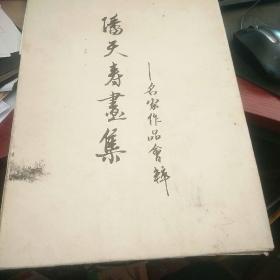 潘天寿畫集
—名家作品會粹